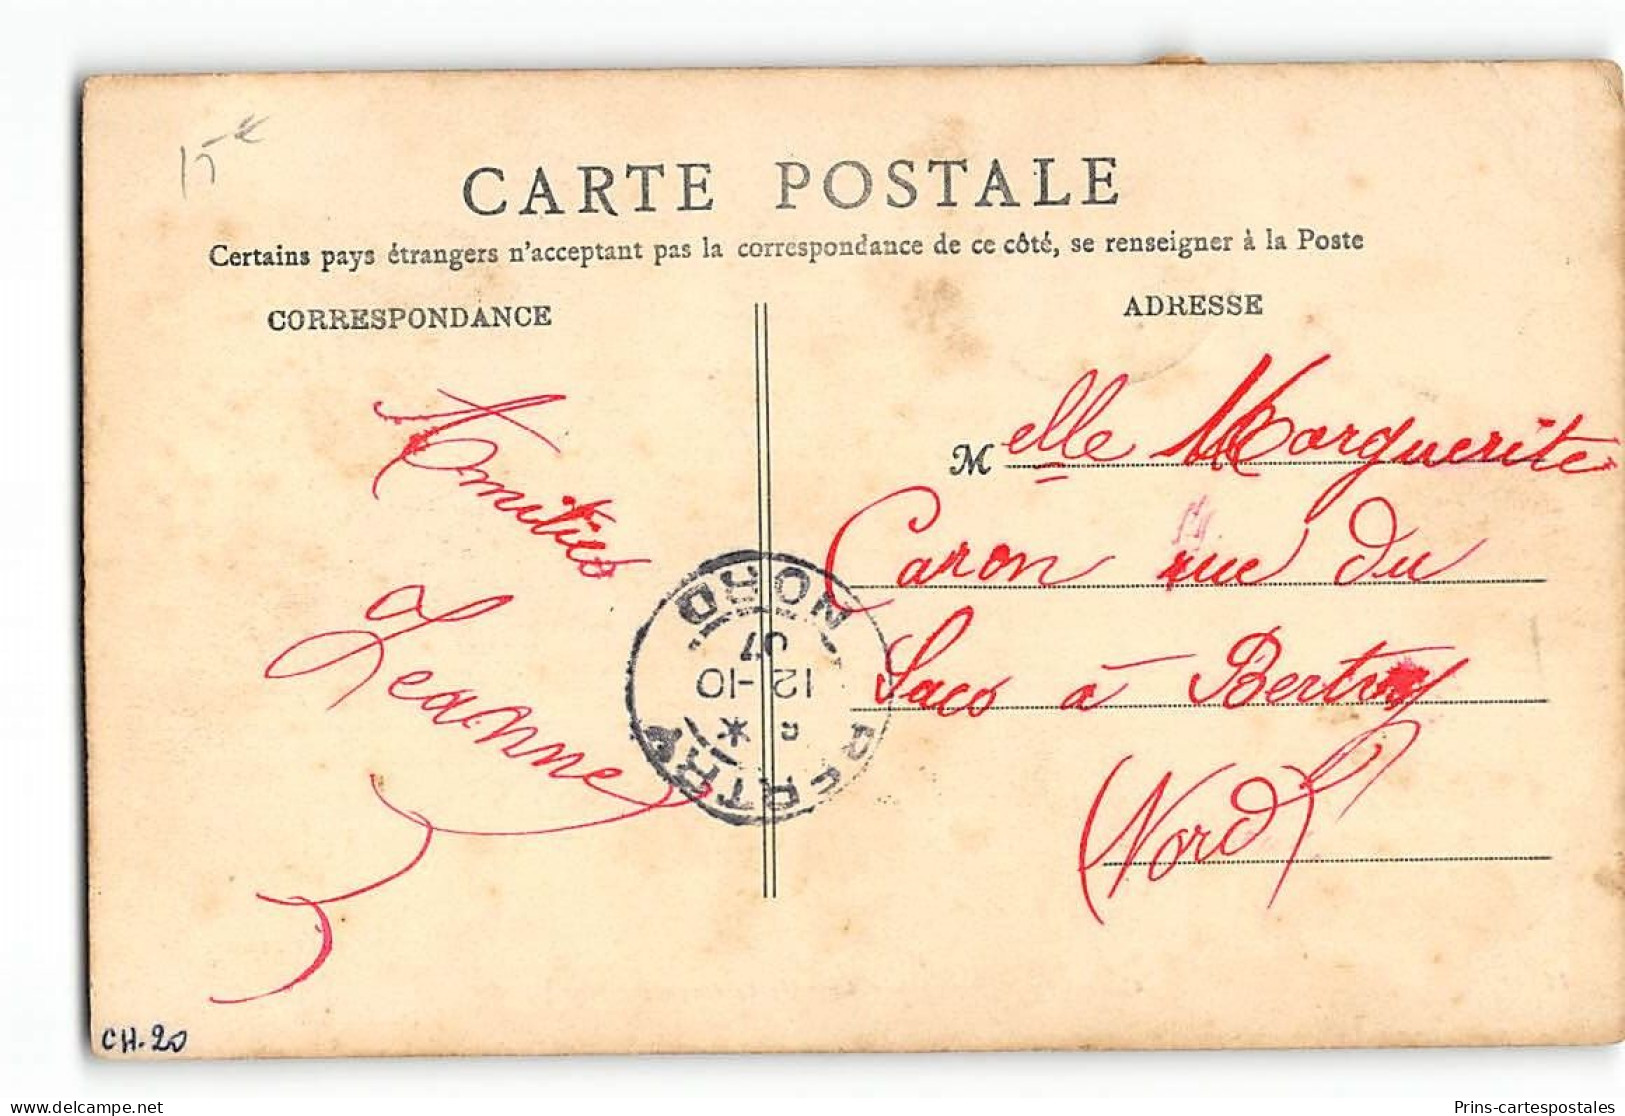 15 €
CARTE POSTALE
Certains pays étrangers n'acceptant pas la correspondance de ce côté, se renseigner à la Poste
CORRESPONDANCE
ADRESSE
Amitiés
Jeanne
Melle Marguerite
Caron rue du
Sacs à Bertry
(Nord)
BERTRY
12-10
07
NORD
CH.20
delcampe.net
Prins-cartespostales